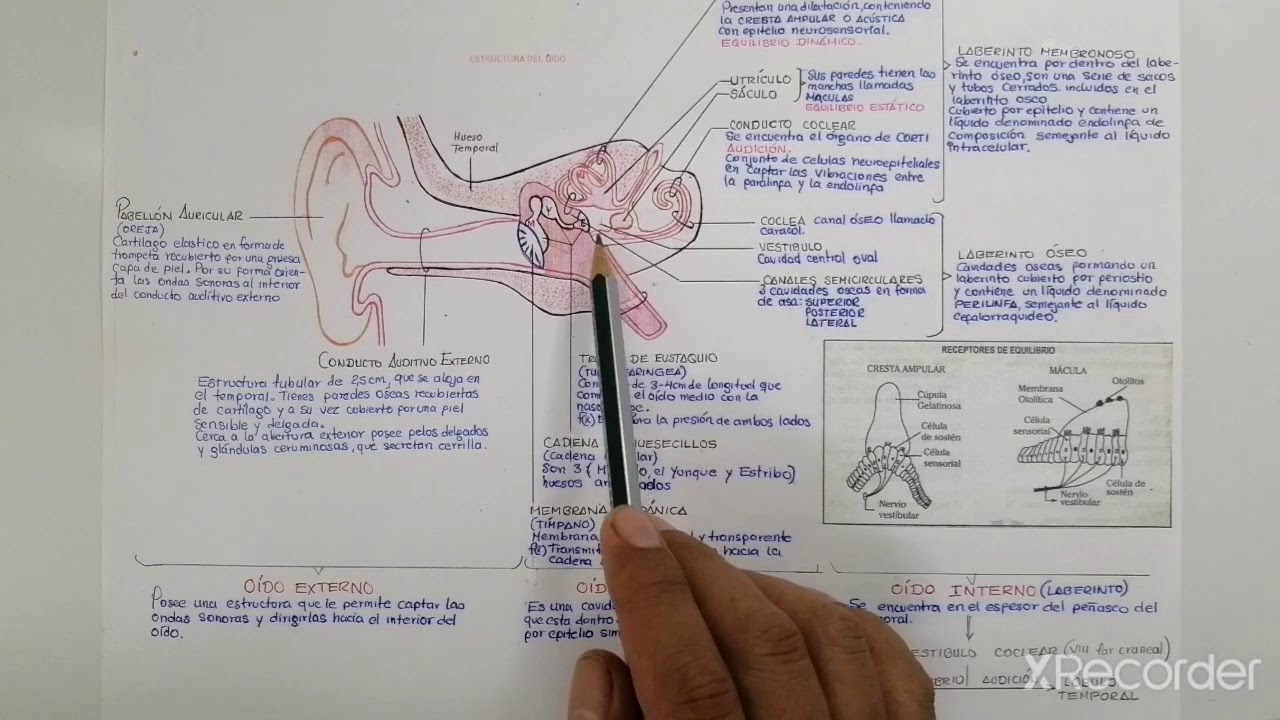 Presentan una dilatación, conteniendo
la CRESTA AMPULAR O ACÚSTICA
con epitelio neurosensorial.
EQUILIBRIO DINÁMICO.
ESTRUCTURA DEL OÍDO
UTRÍCULO
SÁCULO
Sus paredes tienen las
manchas llamadas
MÁCULAS
EQUILIBRIO ESTÁTICO
CONDUCTO COCLEAR
Se encuentra el órgano de CORTI
AUDICIÓN.
Conjunto de celulas neuroepiteliales
en captar las vibraciones entre
la paralinfa y la endolinfa
LABERINTO MEMBRONOSO
Se encuentra por dentro del labe-
rinto óseo, son una serie de sacos
y tubos cerrados. incluidos en el
laberinto osco
Cubierto por epitelio y contiene un
líquido denominado endolinfa de
composición semejante al líquido
intracelular.
Hueso
Temporal
M
Y
E
PABELLÓN AURICULAR
(OREJA)
Cartílago elastico en forma de
trompeta recubierto por una gruesa
capa de piel. Por su forma orien-
ta las ondas sonoras al interior
del conducto auditivo externo
COCLEA canal óseo llamado
caracol.
VESTIBULO
Cavidad central oval
CANALES SEMICIRCULARES
3 cavidades oseas en forma
de asa: SUPERIOR
POSTERIOR
LATERAL
LABERINTO ÓSEO
Cavidades oseas formando un
laberinto cubierto por periostio
y contiene un líquido denominado
PERILINFA, semejante al líquido
cefalorraquideo.
CONDUCTO AUDITIVO EXTERNO
Estructura tubular de 2,5cm, que se aloja en
el temporal. Tienes paredes oseas recubiertas
de cartílago y a su vez cobierto por una piel
sensible y delgada.
Cerca a la abertura exterior posee pelos delgados
y glándulas ceruminosas, que secretan cerrilla.
DE EUSTAQUIO
de 3-4cm de longitud que
el oído medio con la
la presión de ambos lados
CADENA
(Cadena
Son 3 el Yonque y Estribo)
huesos
MEMBRANA
(TÍMPANO)
Membrana y transparente
f(x) hacia la
cadena
RECEPTORES DE EQUILIBRIO
CRESTA AMPULAR
MÁCULA
Cúpula
Gelatinosa
Célula
de sostén
Célula
sensorial
Nervio
vestibular
Otolitos
Membrana
Otolítica
Célula
sensorial
Célula de
sostén
Nervio
vestibular
OÍDO EXTERNO
Posee una estructura que le permite captar las
ondas sonoras y dirigirlas hacia el interior del
oído.
Es una
que esta dentro
por epitelio
OÍDO INTERNO (LABERINTO)
Se encuentra en el espesor del peñasco del
COCLEAR (VIII par craneal)
AUDICIÓN
LÓBULO
TEMPORAL
XRecorder